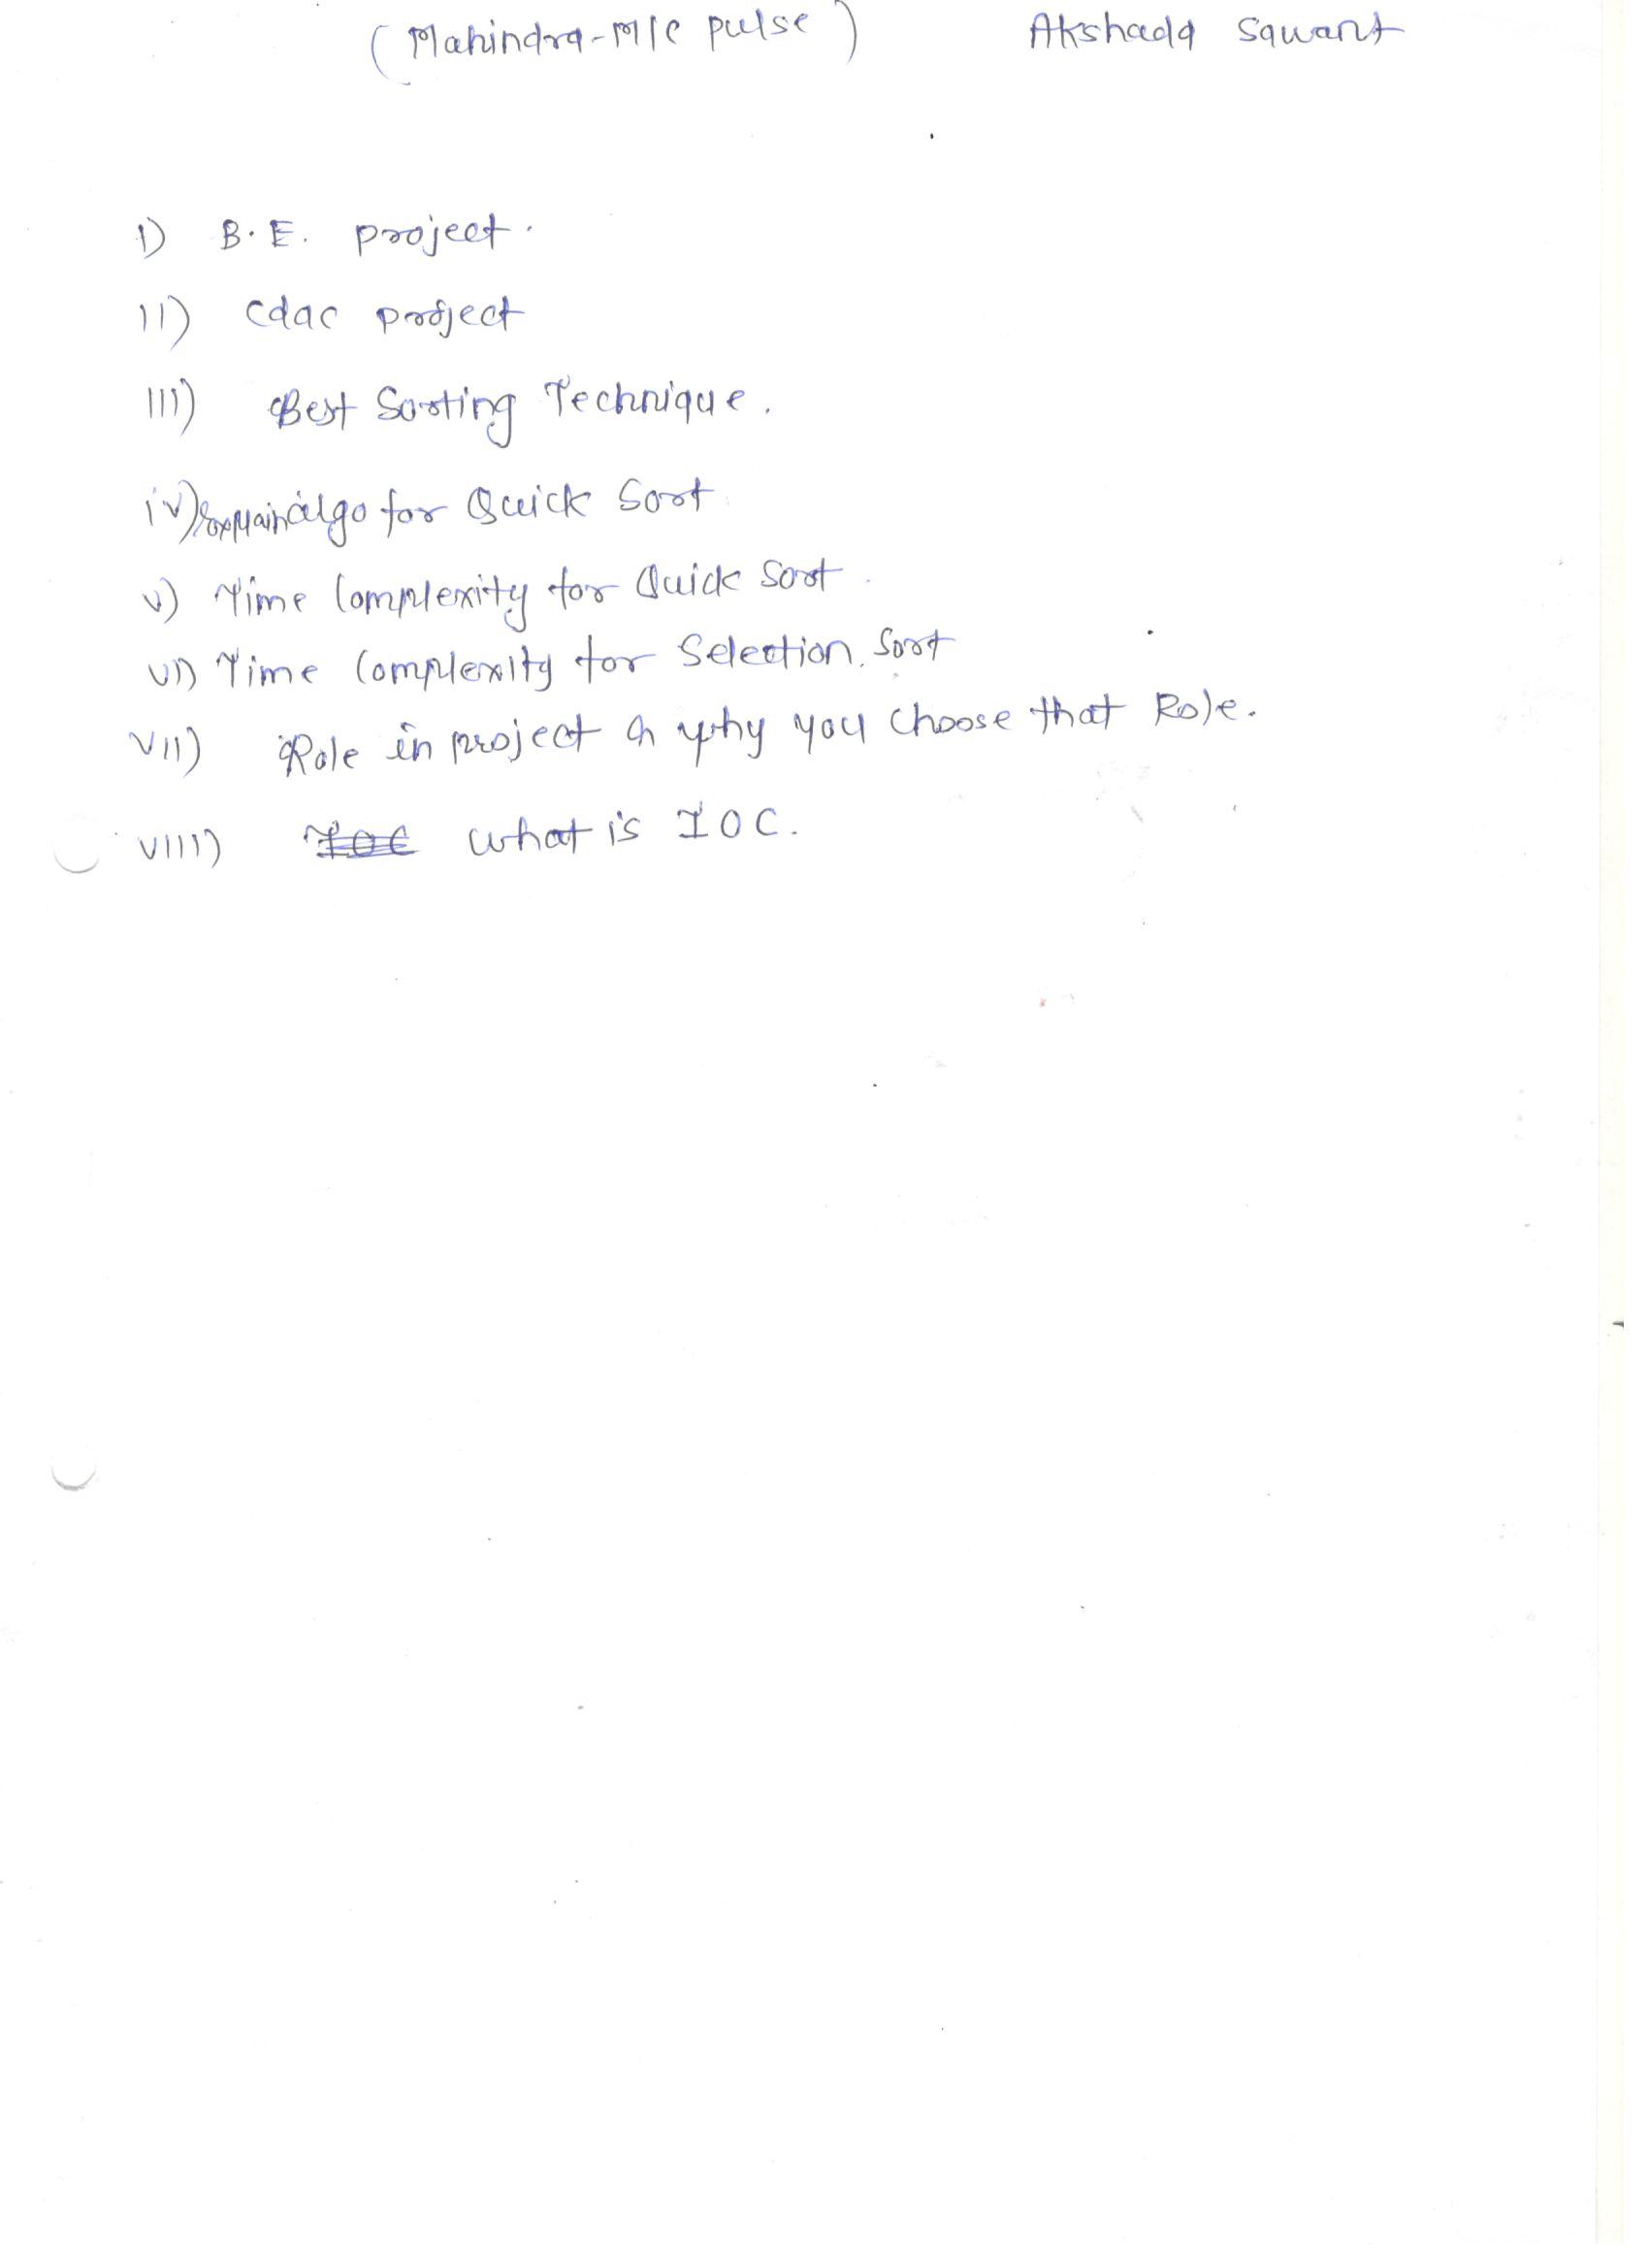 (Mahindra-M/c pulse) Akshada Sawant
I) B.E. project.
II) Cdac project
III) Best Sorting Technique.
iv) Explain algo for Quick Sort
v) Time Complexity for Quick Sort.
VI) Time Complexity for Selection Sort
VII) Role in project & why you choose that Role.
VIII) IOC What is IOC.